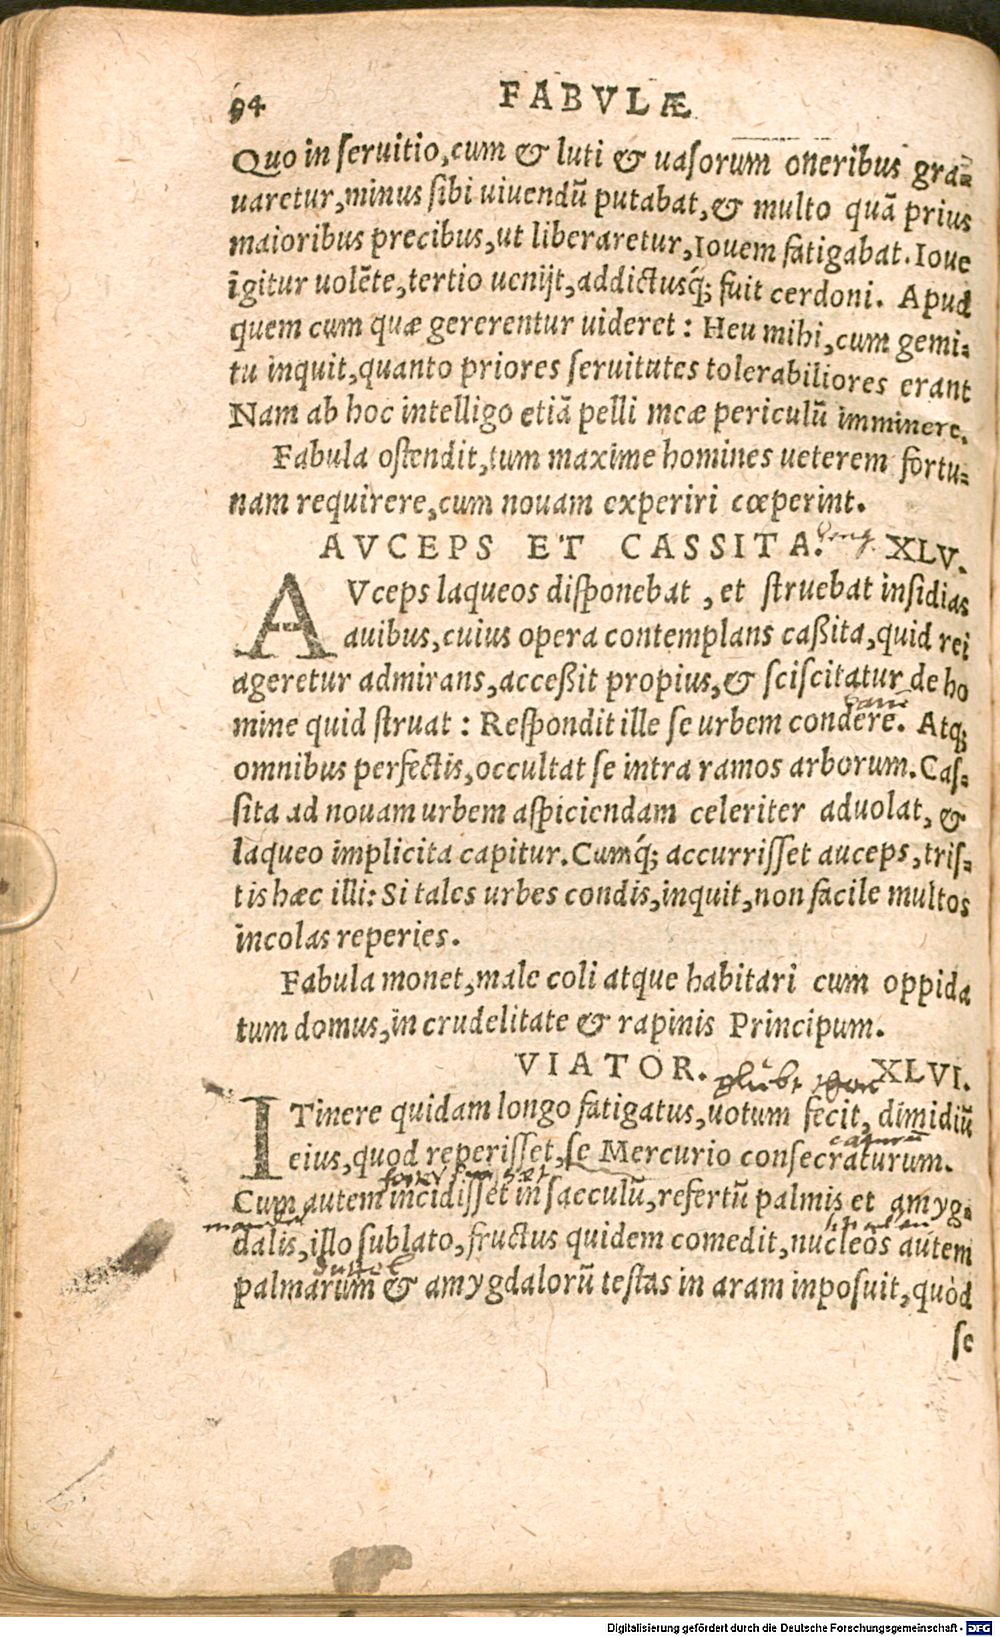 94
FABVLÆ
Quo in ſeruitio,cum & luti & uaſorum oneribus gra-
uaretur,minus ſibi uiuendū putabat,& multo quā prius
maioribus precibus,ut liberaretur,Iouem fatigabat.Ioue
igitur uolēte,tertio uenijt,addictusq́; fuit cerdoni. Apud
quem cum quæ gererentur uideret : Heu mihi,cum gemi-
tu inquit,quanto priores ſeruitutes tolerabiliores erant
Nam ab hoc intelligo etiā pelli meæ periculū imminere.
Fabula oſtendit,tum maxime homines ueterem fortu-
nam requirere,cum nouam experiri cœperint.
AVCEPS ET CASSITA. XLV.
AVceps laqueos diſponebat , et ſtruebat inſidias
auibus,cuius opera contemplans caßita,quid rei
ageretur admirans,acceßit propius,& ſciſcitatur de ho
mine quid ſtruat : Reſpondit ille ſe urbem condere. Atq;
omnibus perfectis,occultat ſe intra ramos arborum.Caſ-
ſita ad nouam urbem aſpiciendam celeriter aduolat, &
laqueo implicita capitur.Cumq́; accurriſſet auceps,triſ-
tis hæc illi: Si tales urbes condis,inquit,non facile multos
incolas reperies.
Fabula monet,male coli atque habitari cum oppida
tum domus,in crudelitate & rapinis Principum.
VIATOR. XLVI.
ITinere quidam longo fatigatus,uotum fecit, dimidiū
eius,quod reperiſſet,ſe Mercurio conſecraturum.
Cum autem incidiſſet in ſacculū,refertū palmis et amyg-
dalis,illo ſublato,fructus quidem comedit,nucleos autem
palmarum & amygdalorū teſtas in aram inpoſuit,quòd
ſe
Digitalisierung gefördert durch die Deutsche Forschungsgemeinschaft - DFG